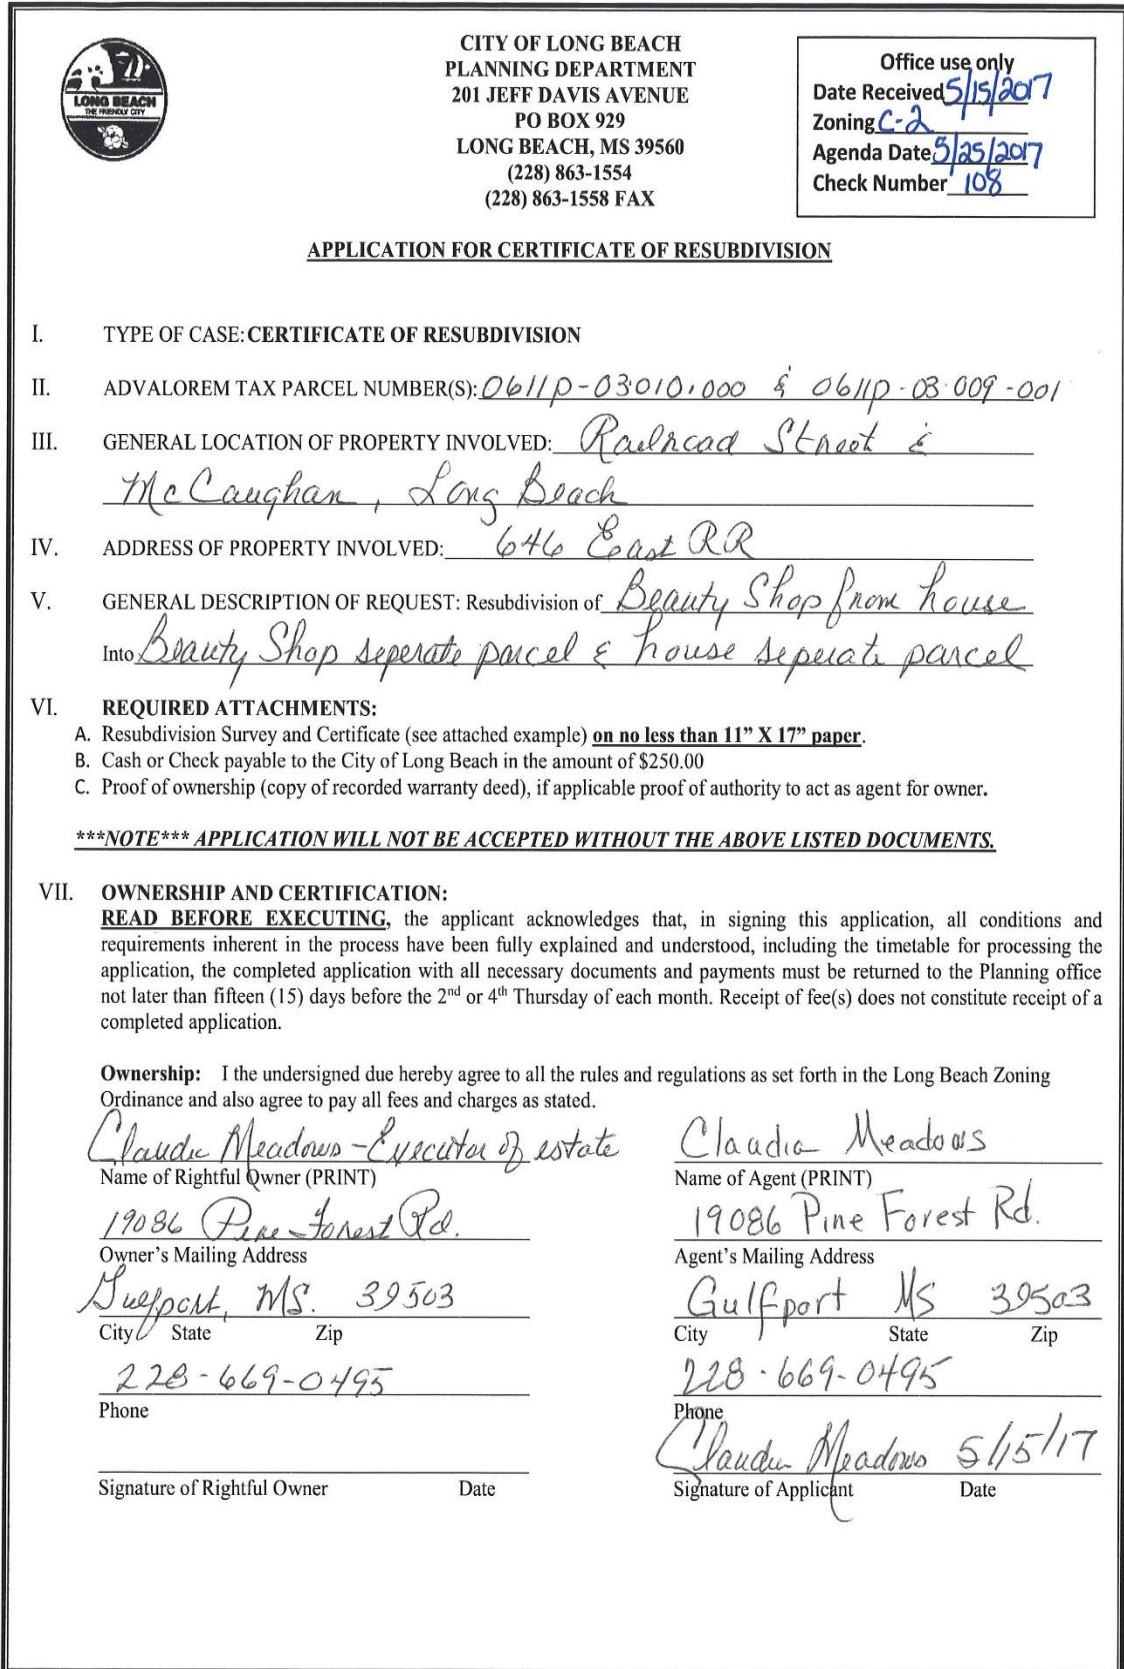 LONG BEACH
THE FRIENDLY CITY
CITY OF LONG BEACH
PLANNING DEPARTMENT
201 JEFF DAVIS AVENUE
PO BOX 929
LONG BEACH, MS 39560
(228) 863-1554
(228) 863-1558 FAX
Office use only
Date Received 5/15/2017
Zoning C-2
Agenda Date 5/25/2017
Check Number 108
APPLICATION FOR CERTIFICATE OF RESUBDIVISION
I. TYPE OF CASE: CERTIFICATE OF RESUBDIVISION
II. ADVALOREM TAX PARCEL NUMBER(S): 0611p-03010.000 & 0611p-03.009-001
III. GENERAL LOCATION OF PROPERTY INVOLVED: Railroad Street &
McCaughan, Long Beach
IV. ADDRESS OF PROPERTY INVOLVED: 646 East RR
V. GENERAL DESCRIPTION OF REQUEST: Resubdivision of Beauty Shop from house
Into Beauty Shop seperate parcel & house seperate parcel
VI. REQUIRED ATTACHMENTS:
A. Resubdivision Survey and Certificate (see attached example) on no less than 11” X 17” paper.
B. Cash or Check payable to the City of Long Beach in the amount of $250.00
C. Proof of ownership (copy of recorded warranty deed), if applicable proof of authority to act as agent for owner.
***NOTE*** APPLICATION WILL NOT BE ACCEPTED WITHOUT THE ABOVE LISTED DOCUMENTS.
VII. OWNERSHIP AND CERTIFICATION:
READ BEFORE EXECUTING, the applicant acknowledges that, in signing this application, all conditions and
requirements inherent in the process have been fully explained and understood, including the timetable for processing the
application, the completed application with all necessary documents and payments must be returned to the Planning office
not later than fifteen (15) days before the 2nd or 4th Thursday of each month. Receipt of fee(s) does not constitute receipt of a
completed application.
Ownership: I the undersigned due hereby agree to all the rules and regulations as set forth in the Long Beach Zoning
Ordinance and also agree to pay all fees and charges as stated.
Claudia Meadows-Executor of estate
Name of Rightful Owner (PRINT)
19086 Pine Forest Rd.
Owner’s Mailing Address
Gulfport, MS. 39503
City State Zip
228-669-0495
Phone
Signature of Rightful Owner Date
Claudia Meadows
Name of Agent (PRINT)
19086 Pine Forest Rd.
Agent’s Mailing Address
Gulfport MS 39503
City State Zip
228-669-0495
Phone
Claudia Meadows 5/15/17
Signature of Applicant Date